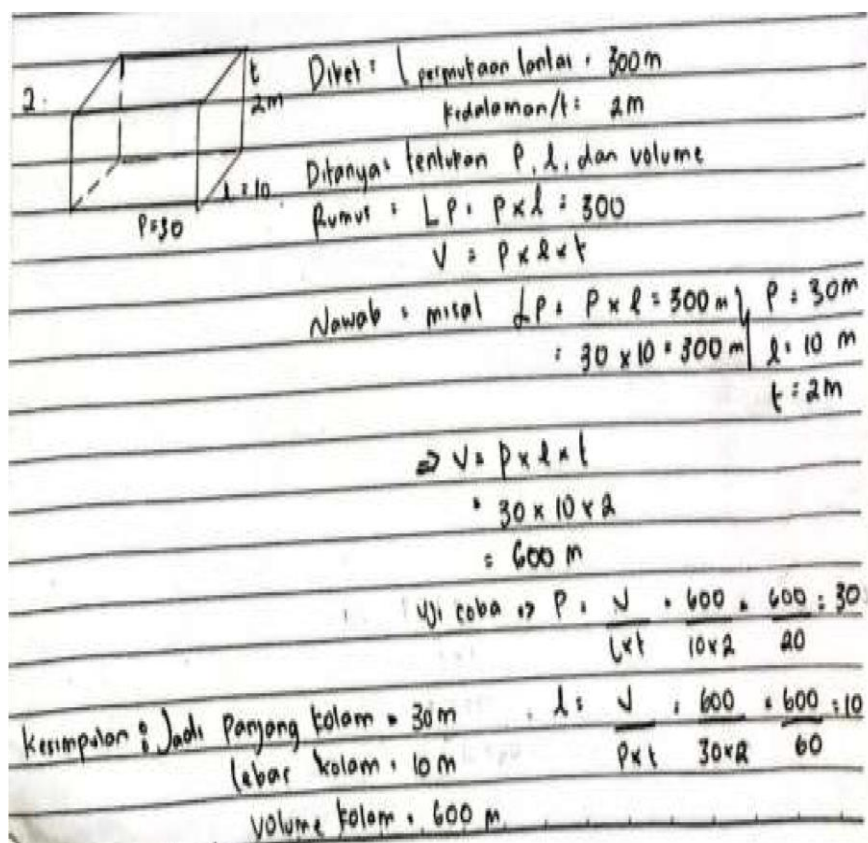 2.
t
2m
l = 10
P = 30
Diket : L permukaan lantai : 300 m
kedalaman/t : 2m
Ditanya : tentukan P, l, dan volume
Rumus : LP : P x l = 300
V = P x l x t
Jawab : misal LP = P x l = 300 m } P = 30 m
= 30 x 10 = 300 m l = 10 m
t = 2 m
=> V = p x l x t
= 30 x 10 x 2
= 600 m
Uji coba => P = V/(l x t) = 600/(10 x 2) = 600/20 = 30
l = V/(P x t) = 600/(30 x 2) = 600/60 = 10
Kesimpulan : Jadi Panjang kolam = 30 m
lebar kolam = 10 m
Volume kolam = 600 m